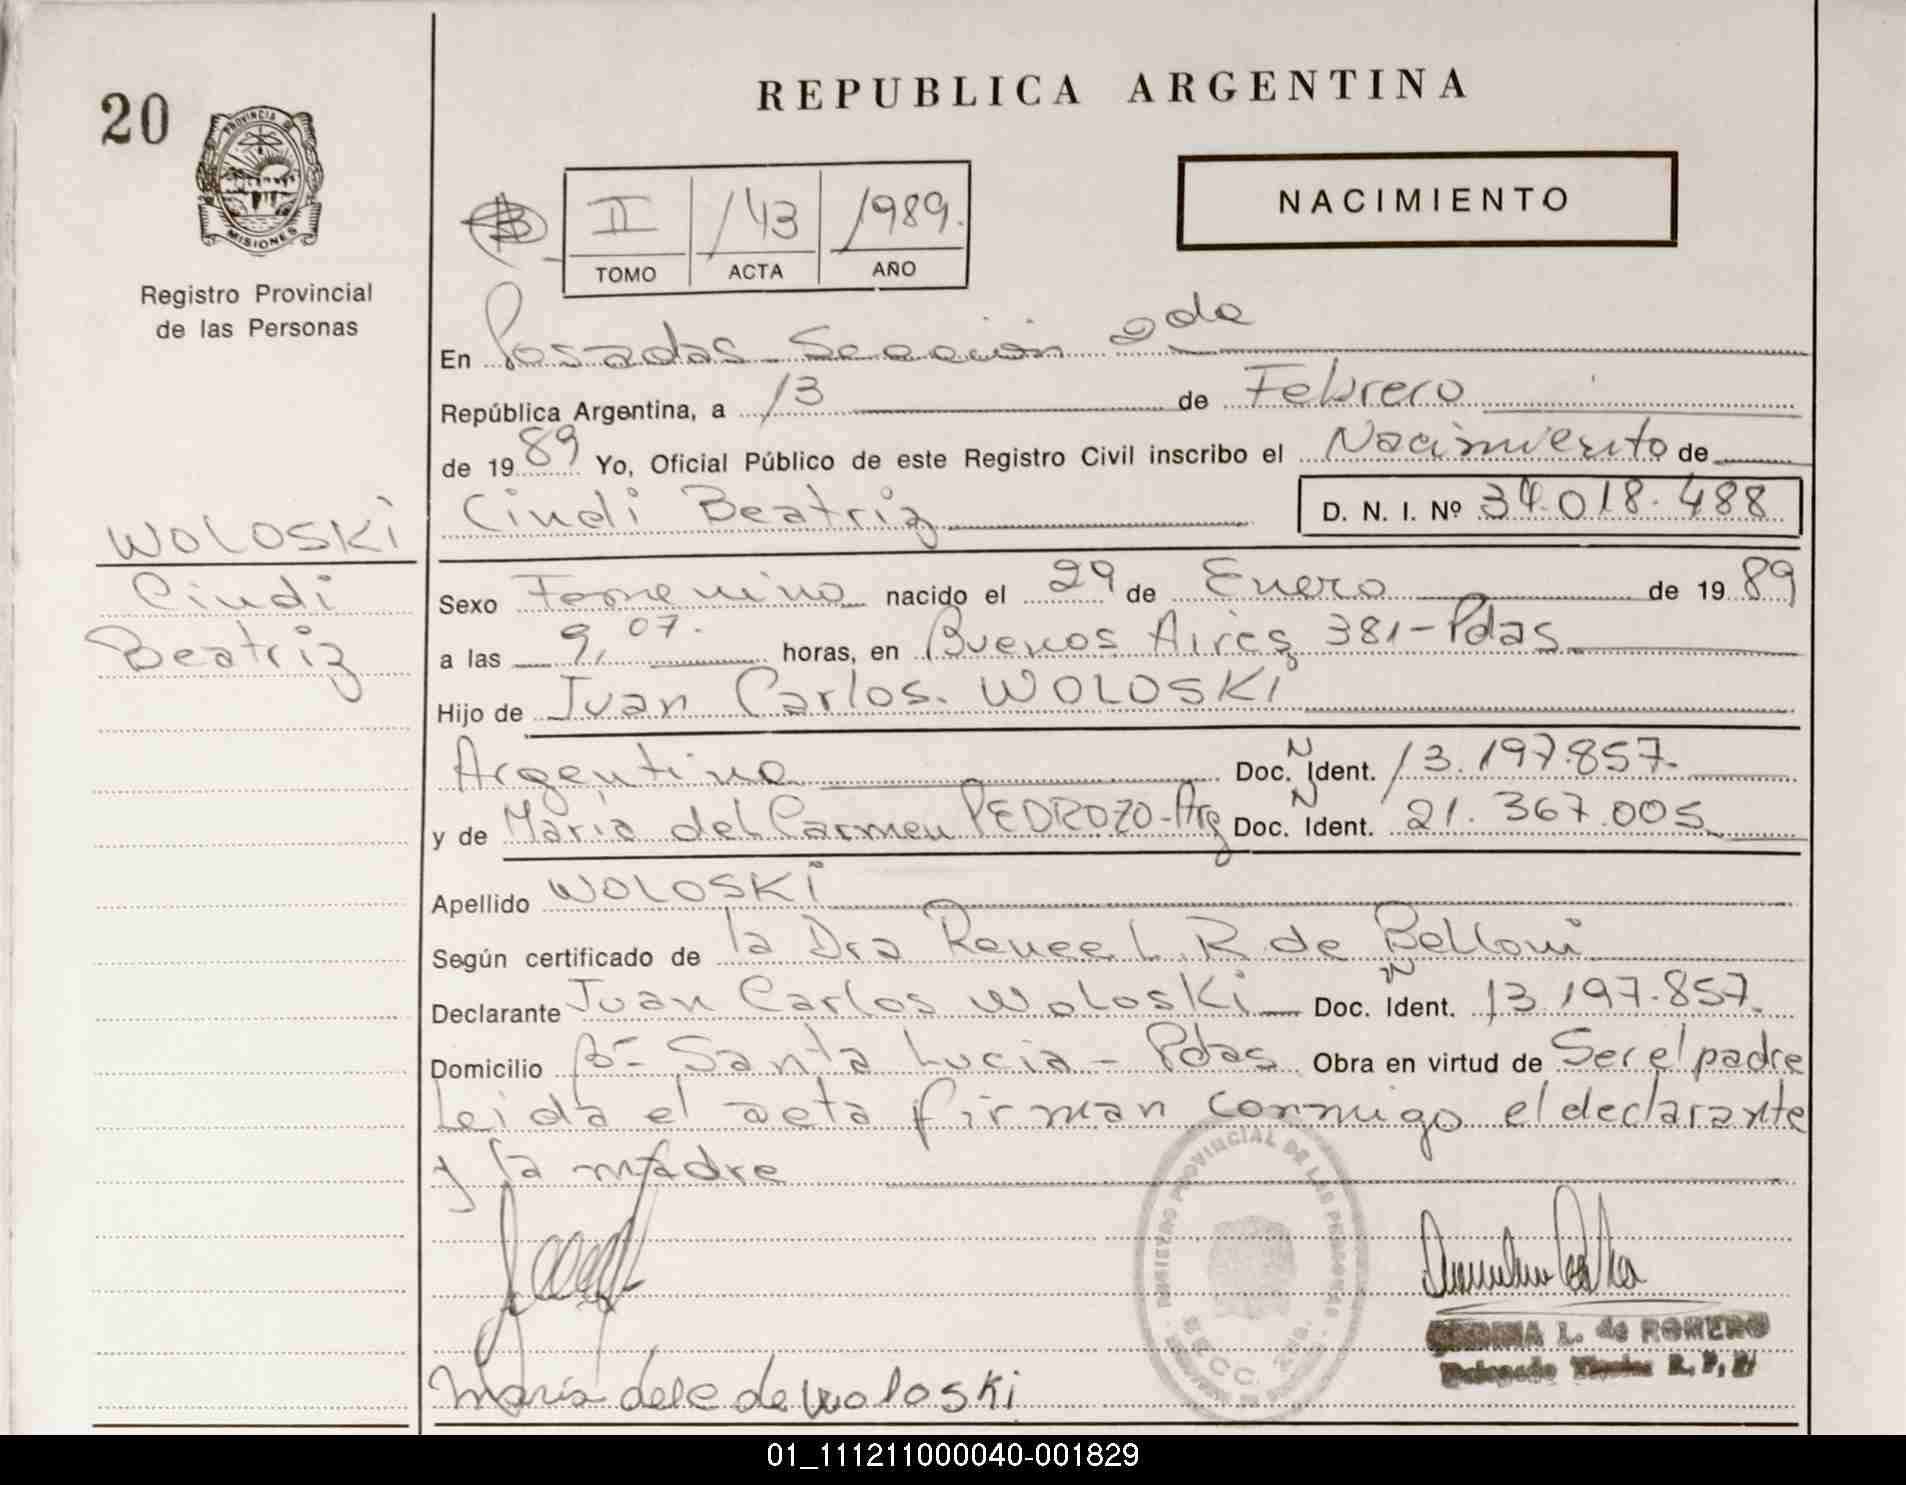 REPUBLICA ARGENTINA
20
PROVINCIA DE
MISIONES
Registro Provincial
de las Personas
NACIMIENTO
II /43 1989.
TOMO ACTA AÑO
En Posadas Sección 2da
República Argentina, a 13 de Febrero
de 1989 Yo, Oficial Público de este Registro Civil inscribo el Nacimiento de
Cindi Beatriz D. N. I. Nº 34.018.488
WOLOSKI
Cindi
Beatriz
Sexo Femenino nacido el 29 de Enero de 1989
a las 9,07. horas, en Buenos Aires 381-Pdas.
Hijo de Juan Carlos. WOLOSKI
Argentino Doc. N Ident. 13.197.857.
y de María del Carmen PEDROZO-Arg Doc. N Ident. 21.367.005
Apellido WOLOSKI
Según certificado de la Dra Renee L. R. de Belloni
Declarante Juan Carlos Woloski Doc. N Ident. 13.197.857.
Domicilio Bº Santa Lucia - Pdas Obra en virtud de Ser el padre
Leida el acta firman conmigo el declarante
y la madre
REGISTRO PROVINCIAL DE LAS PERSONAS
SECC. 2da.
L. de ROMERO
María del C de Woloski
01_111211000040-001829